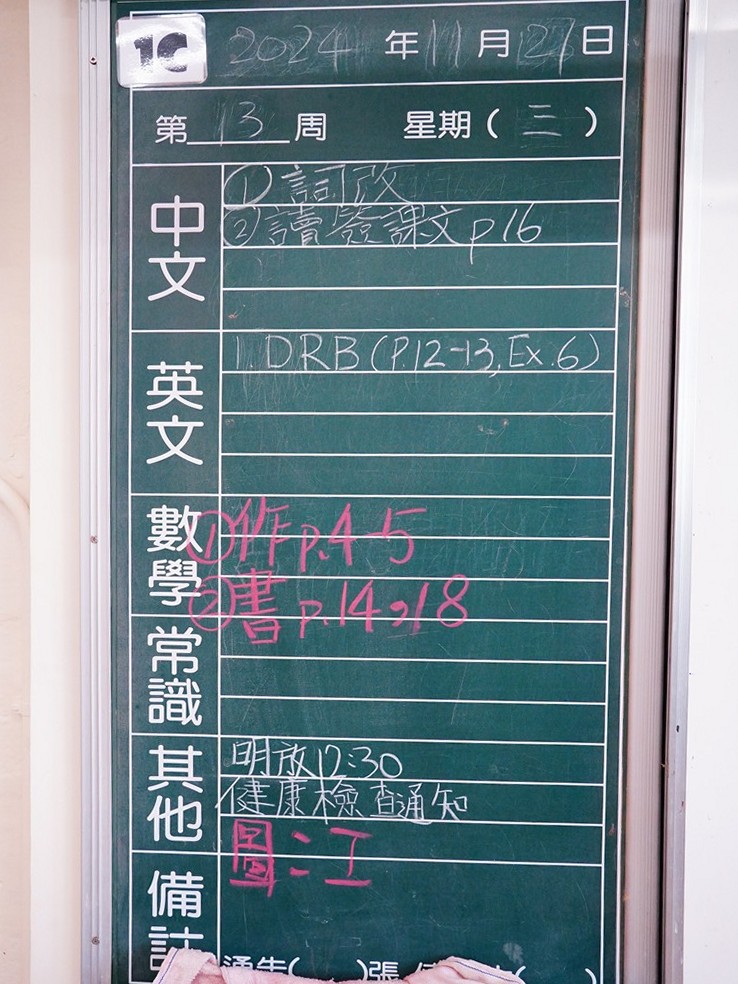 1C 2024 年 11 月 27 日
第 13 周 星期（三）
中文
① 詞改
② 讀簽課文 p16
英文
1. DRB (P.12-13, Ex.6)
數學
① 作 p.4-5
② 書 p.14,18
常識
其他
明放12:30
健康檢查通知
圖:工
備註
通告( )張